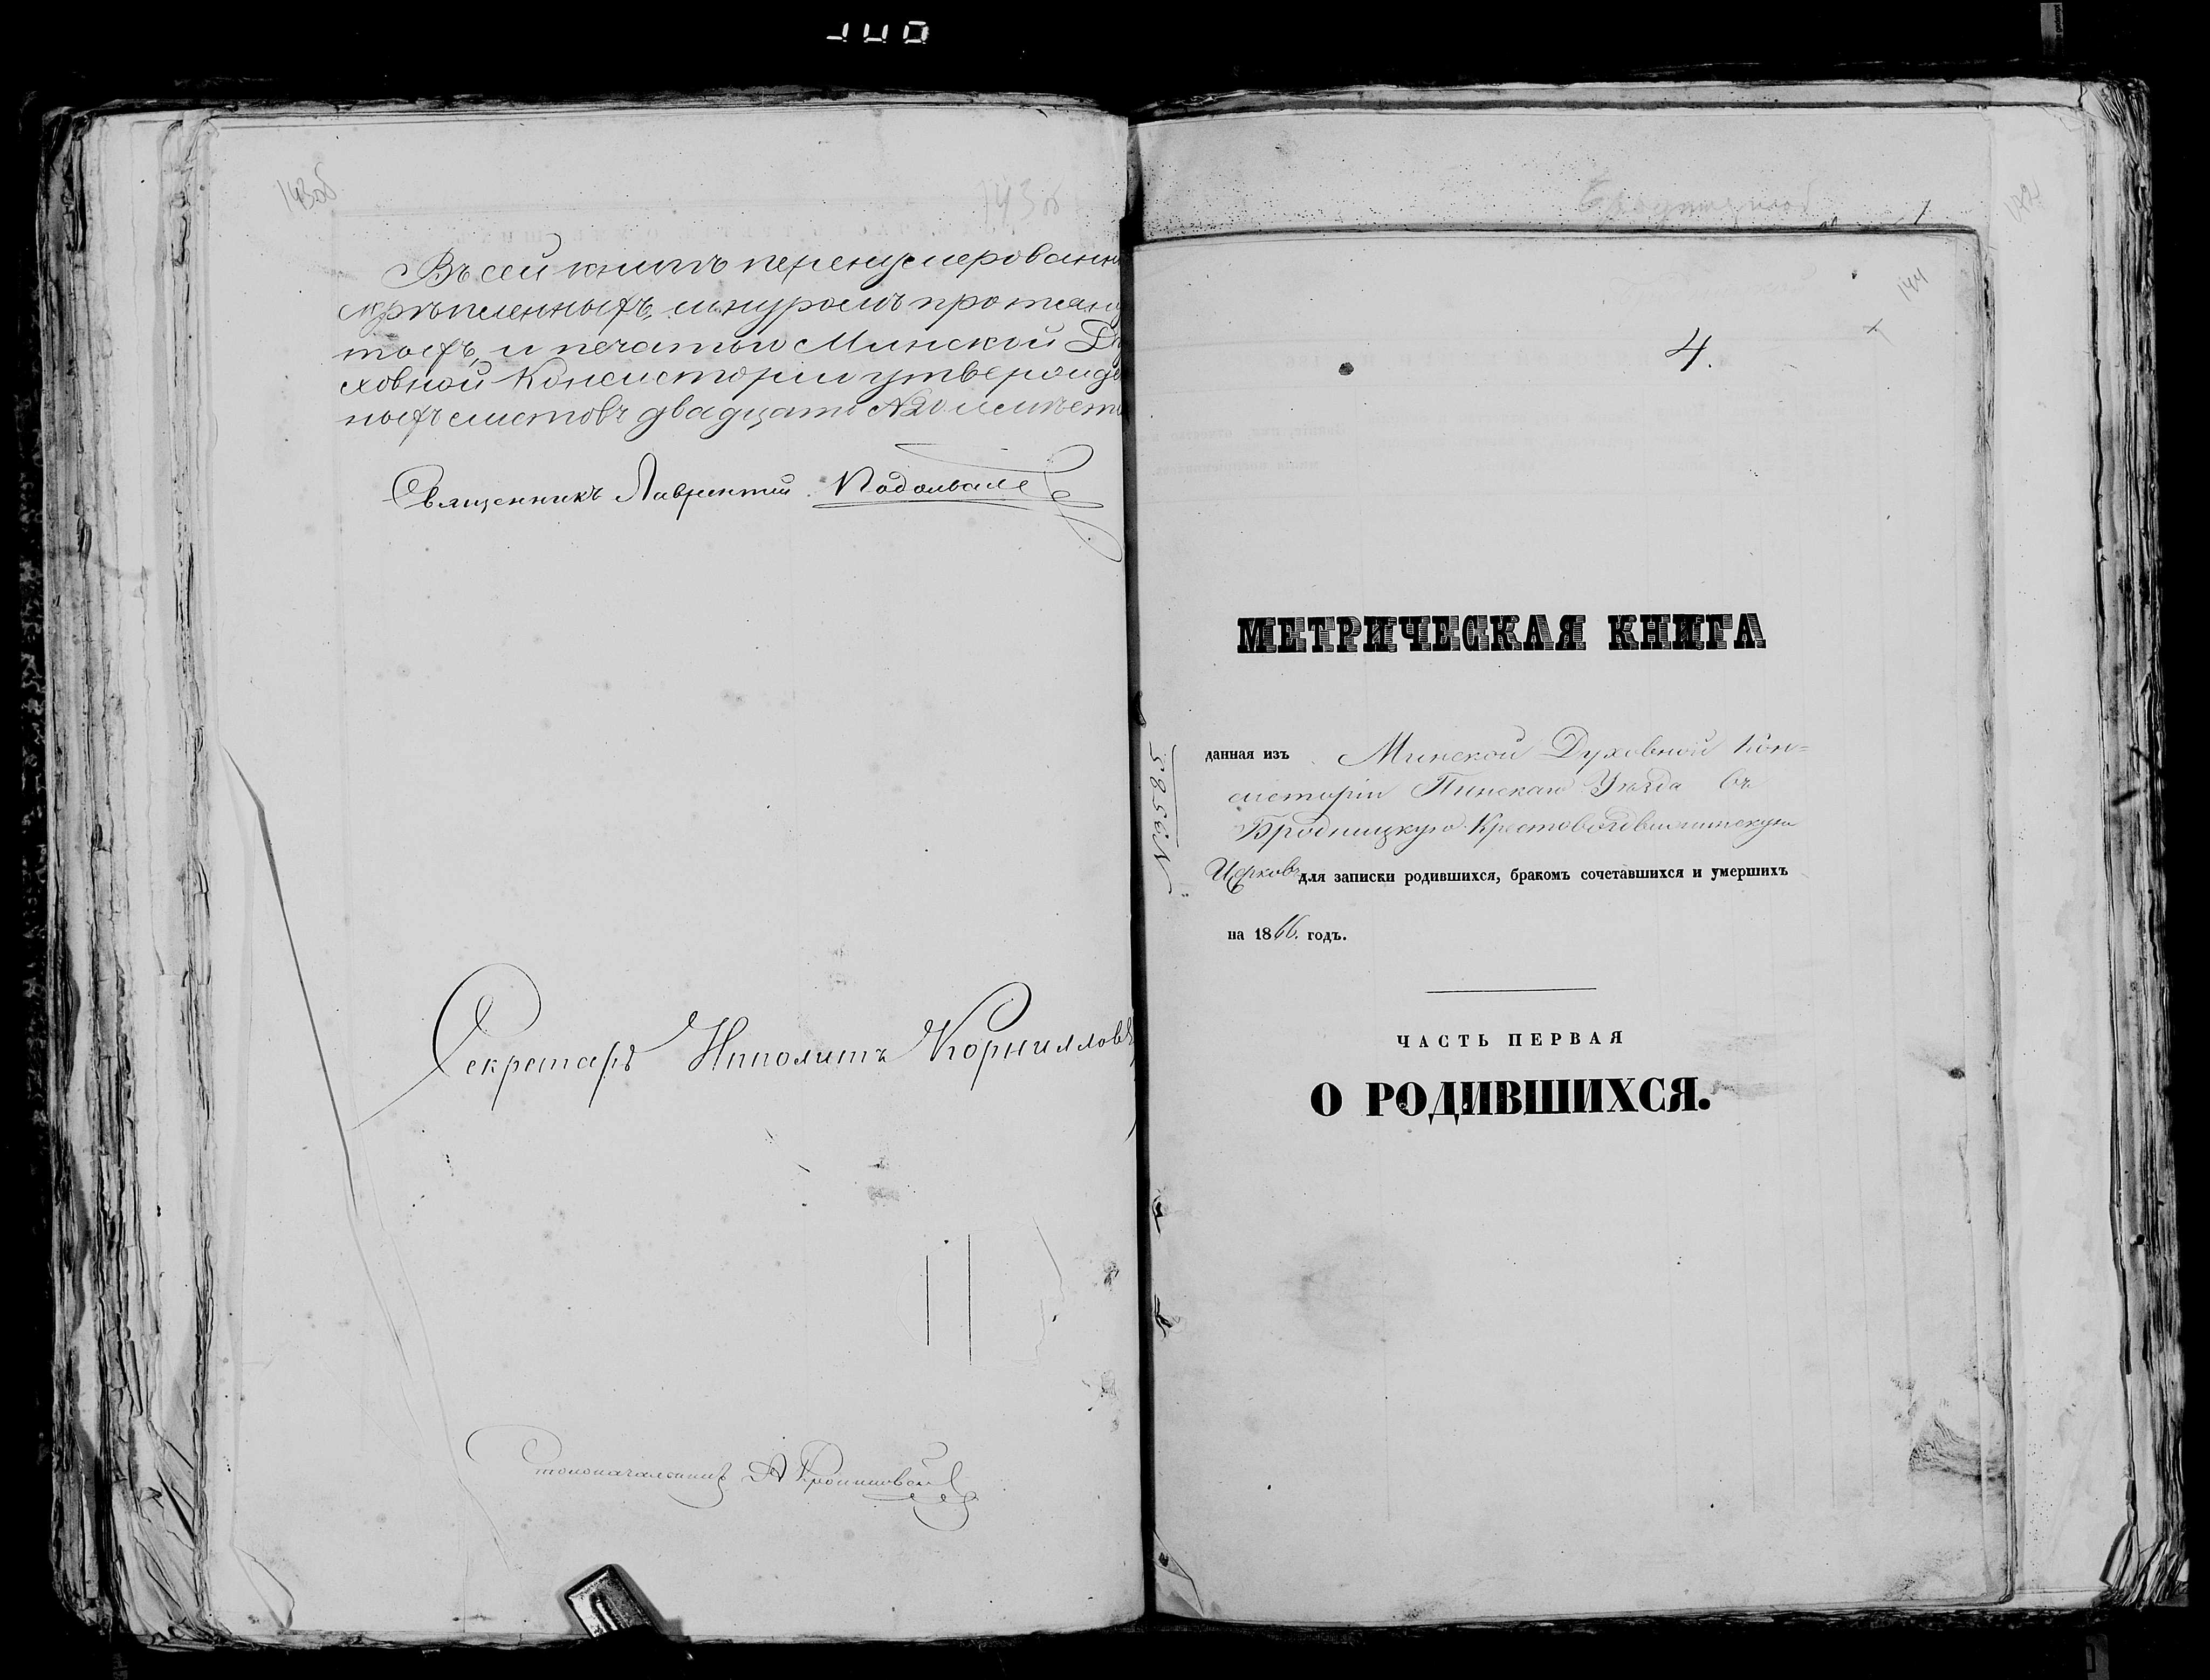 143об
143об
Въ сей книгѣ перенумерованн
скрѣпленныхъ, шнуромъ протяну
тыхъ, и печатью Минской Ду
ховной Консисторіи утвержде
ныхъ листовъ двадцать №20
Священникъ Лаврентій
Секретарь Ипполитъ Корнилловъ
Столоначальникъ А
1
144
4.
МЕТРИЧЕСКАЯ КНИГА
данная изъ Минской Духовной Кон=
систоріи Пинскаго Уѣзда въ
Бродницкую Крестовоздвиженскую
Церковь для записки родившихся, бракомъ сочетавшихся и умершихъ
на 1866. годъ.
№3585
ЧАСТЬ ПЕРВАЯ
О РОДИВШИХСЯ.